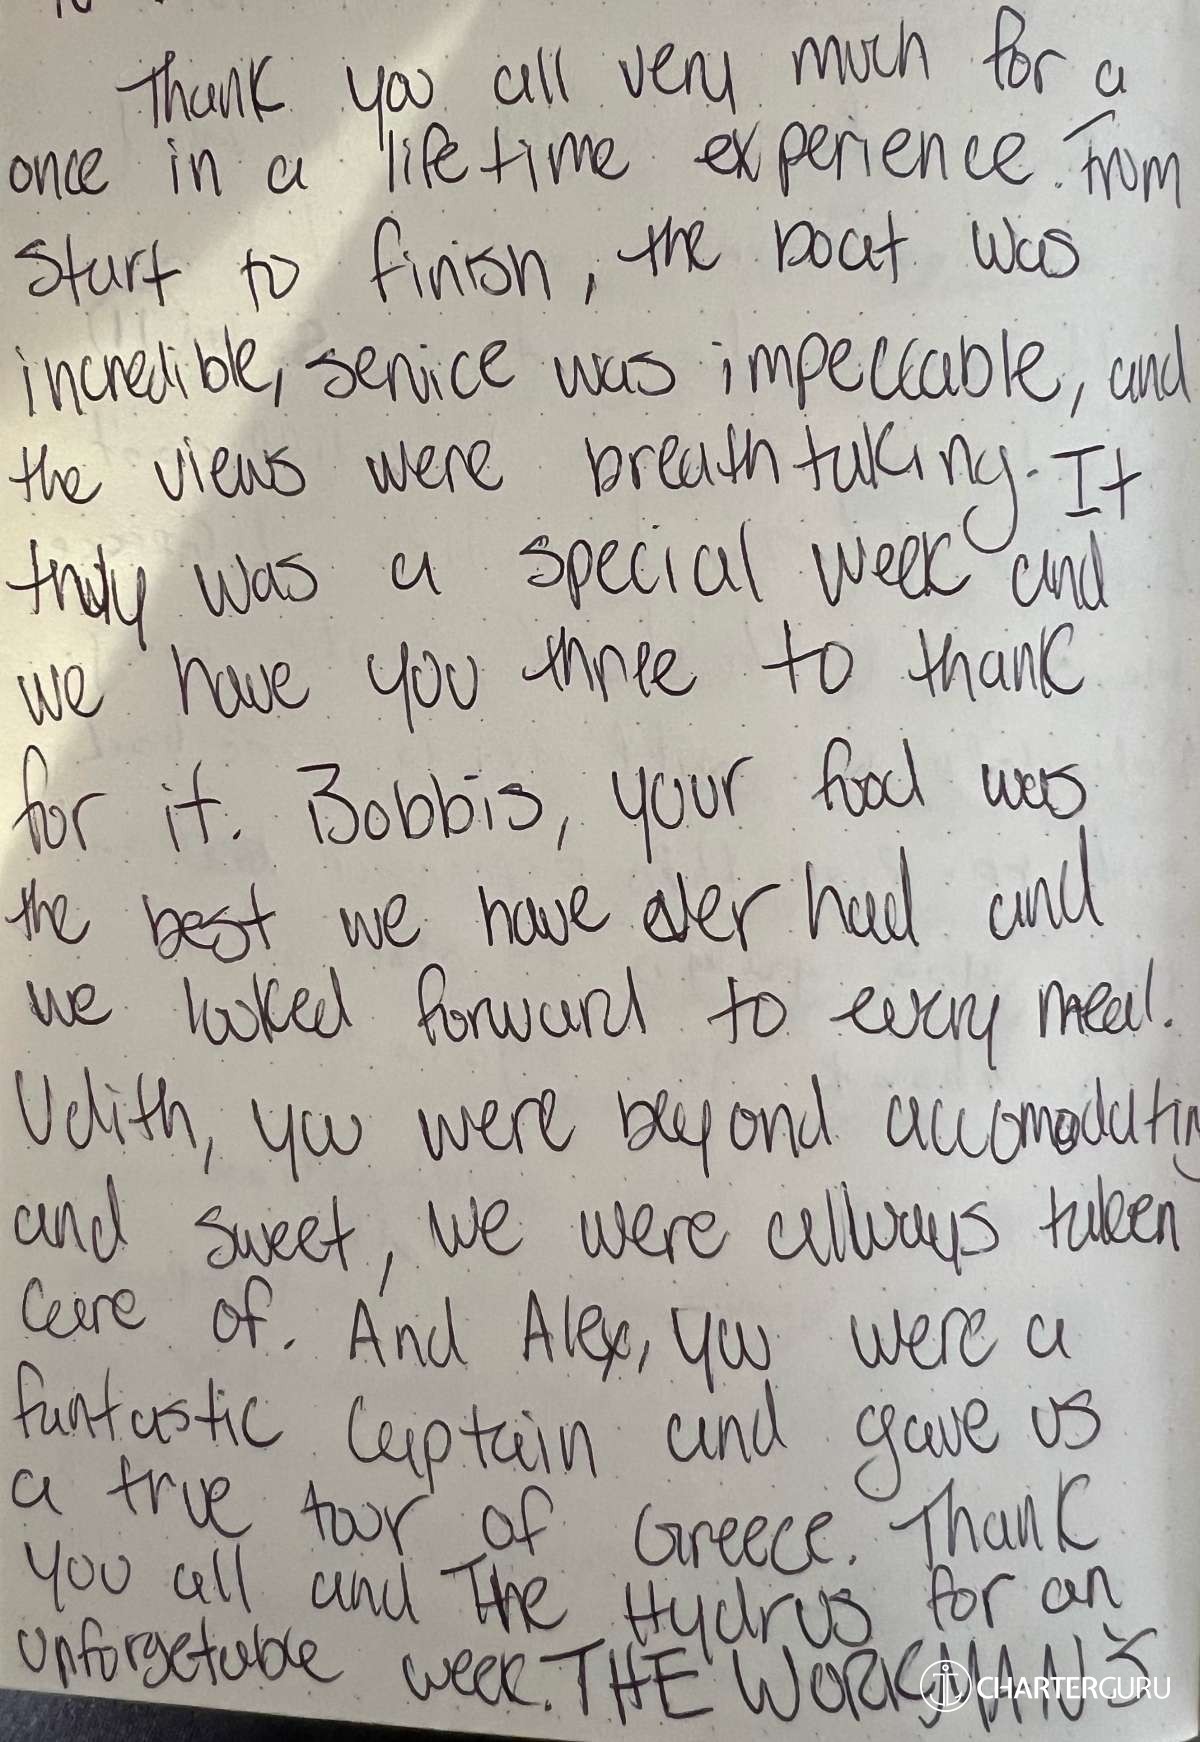 Thank you all very much for a
once in a lifetime experience. From
start to finish, the boat was
incredible, service was impeccable, and
the views were breathtaking. It
truly was a special week and
we have you three to thank
for it. Bobbis, your food was
the best we have ever had and
we looked forward to every meal.
Udith, you were beyond accomodating
and sweet, we were allways taken
care of. And Alex, you were a
fantastic Captain and gave us
a true tour of Greece. Thank
you all and The Hydrus for an
unforgetable week. THE WORKMAN'S
CHARTERGURU